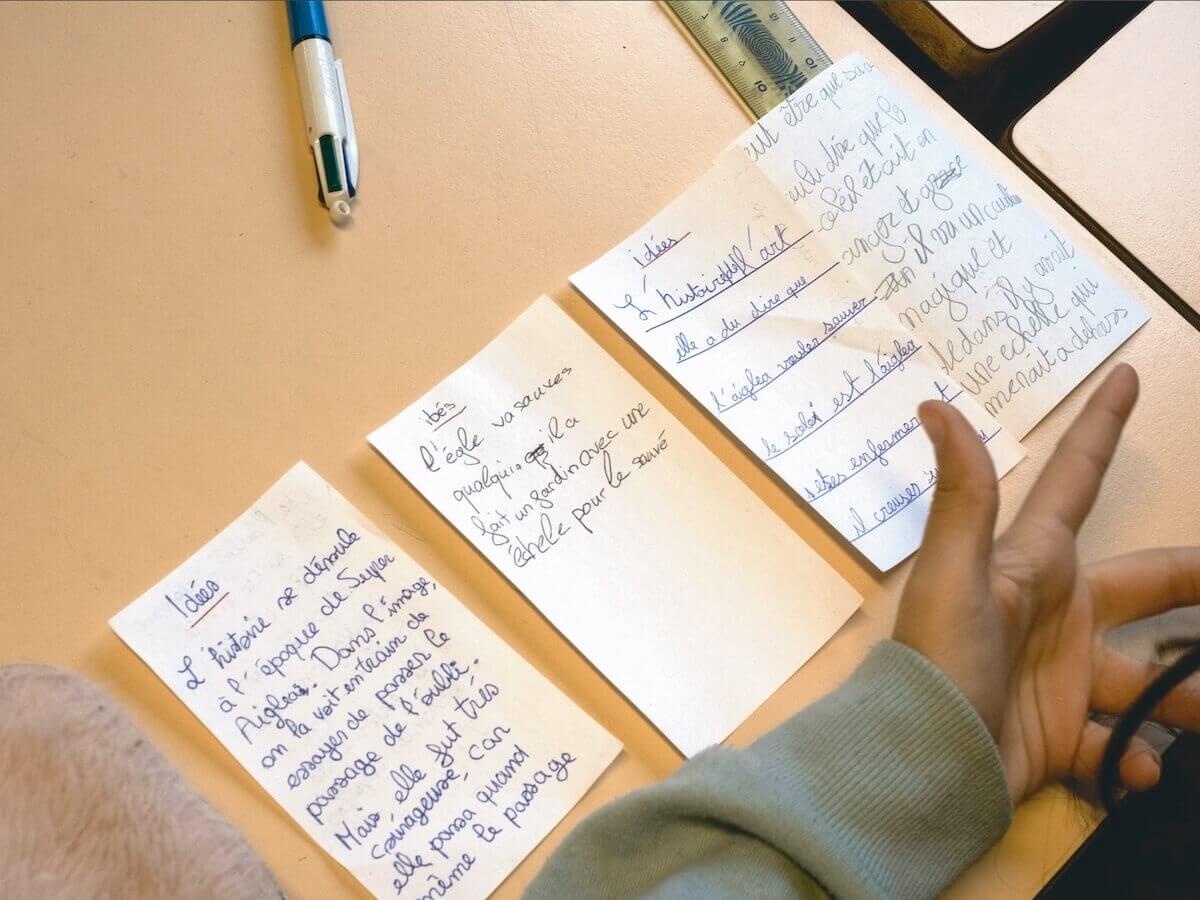 Idées
L'histoire se déroule
à l'époque de Super
Aigles. Dans l'image,
on la voit entrain de
essayer de passer le
passage de l'oublie.
Mais elle fut très
courageuse, car
elle passa quand
même le passage
ibés
l'égle va sauves
qualqu'. il a
fait un jardin avec une
échele pour le sauvé
idées
L'histoire l'art
elle a du dire que
l'aiglea vouler sauver
le soleil est l'aiglea
enfermer
il creuser
être que
dire que le
soleil était en
et
il va un
magique et
dedans il y avait
une echelle qui
menait a dehors
10
11